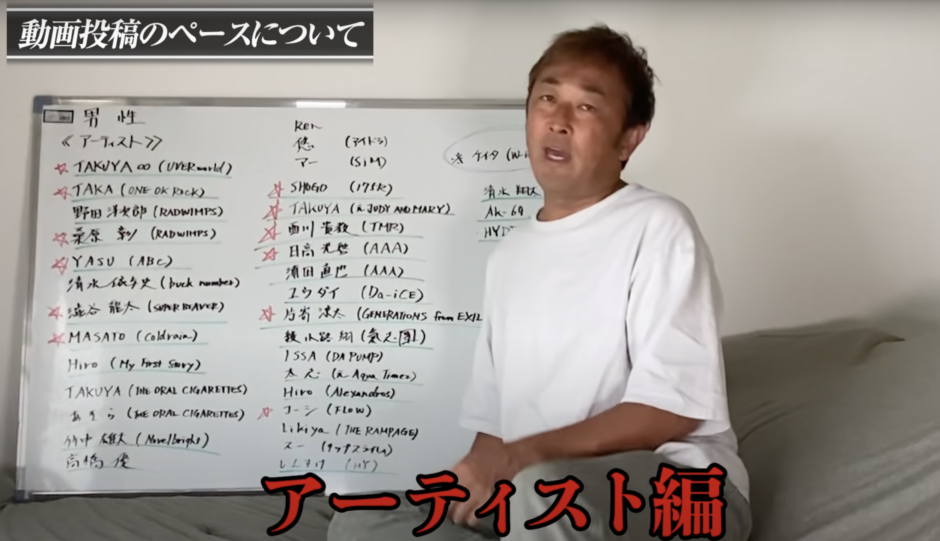 動画投稿のペースについて
男性
≪アーティスト≫
☆ TAKUYA∞ (UVERworld)
☆ TAKA (ONE OK ROCK)
野田洋次郎 (RADWIMPS)
☆ 桑原彰 (RADWIMPS)
☆ YASU (ABC)
清水依与吏 (buck number)
☆ 澁谷龍太 (SUPER BEAVER)
☆ MASATO (Coldrain)
Hiro (My First Story)
TAKUYA (THE ORAL CIGARETTES)
あきら (THE ORAL CIGARETTES)
雄大 (Novelbright)
高橋優
Ken
悠
マー (SiM)
☆ SHOGO (175R)
☆ TAKUYA (元 JUDY AND MARY)
☆ 西川貴教 (TMR)
☆ 日高光啓 (AAA)
浦田直也 (AAA)
ユウダイ (Da-iCE)
☆ 片寄涼太 (GENERATIONS from EXIL
綾小路翔 (氣志團)
ISSA (DA PUMP)
太志 (元 Aqua Timez)
Hiro (Alexandros)
☆ コーシ (FLOW)
Likiya (THE RAMPAGE)
スー (リップスライム)
しんすけ (HY)
ケイタ (W-i
清水翔太
AK-69
HYD
アーティスト編